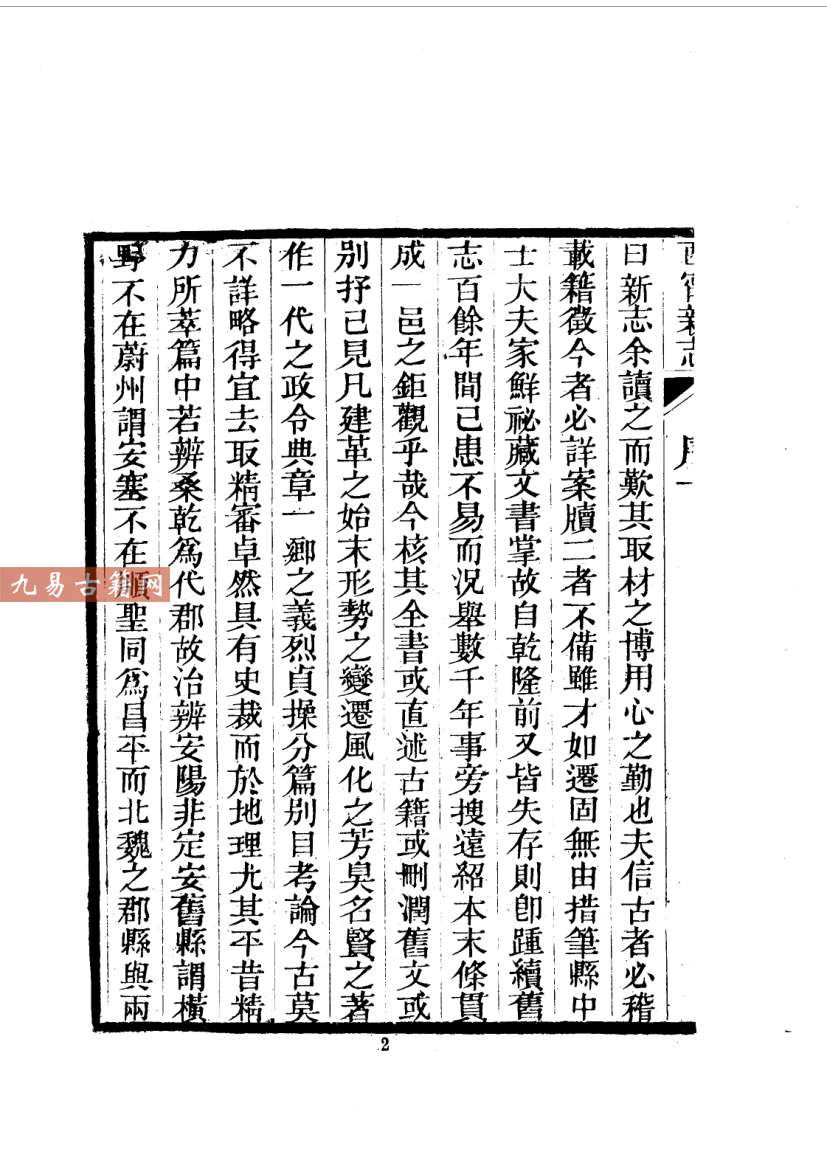 西寗新志
序一
曰新志余讀之而歎其取材之博用心之勤也夫信古者必稽
載籍徵今者必詳案牘二者不備雖才如遷固無由措筆縣中
士大夫家鮮祕藏文書掌故自乾隆前又皆失存則卽踵續舊
志百餘年間已患不易而況舉數千年事旁搜遠紹本末條貫
成一邑之鉅觀乎哉今核其全書或直述古籍或刪潤舊文或
別抒己見凡建革之始末形勢之變遷風化之芳臭名賢之著
作一代之政令典章一鄉之義烈貞操分篇別目考論今古莫
不詳略得宜去取精審卓然具有史裁而於地理尤其平昔精
力所萃篇中若辨桑乾爲代郡故治辨安陽非定安舊縣謂橫
野不在蔚州謂安塞不在順聖同爲昌平而北魏之郡縣與兩
九易古籍网
2